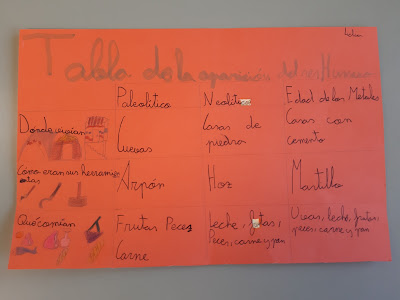 Tabla de la aparición del ser Humano
Paleolítico Neolítico Edad de los Metales
Donde vivían Cuevas Casas de piedra Casas con cemento
Cómo eran sus herramientas Arpón Hoz Martillo
Qué comían Frutas Peces Carne Leche, frutas, Peces, carne y pan Uvas, leche, frutas, peces, carne y pan